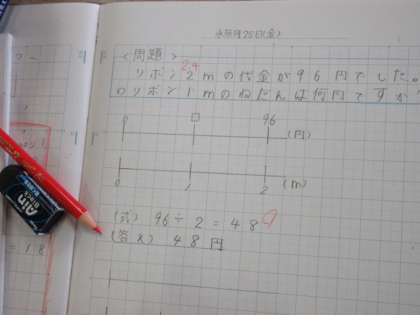 <問題>
2.4
リボン2mの代金が96円でした。
リボン1mのねだんは何円ですか
0 □ 96
(円)
0 1 2 (m)
(式) 96÷2=48
(答え) 48円
Ain
Black
= 1.8